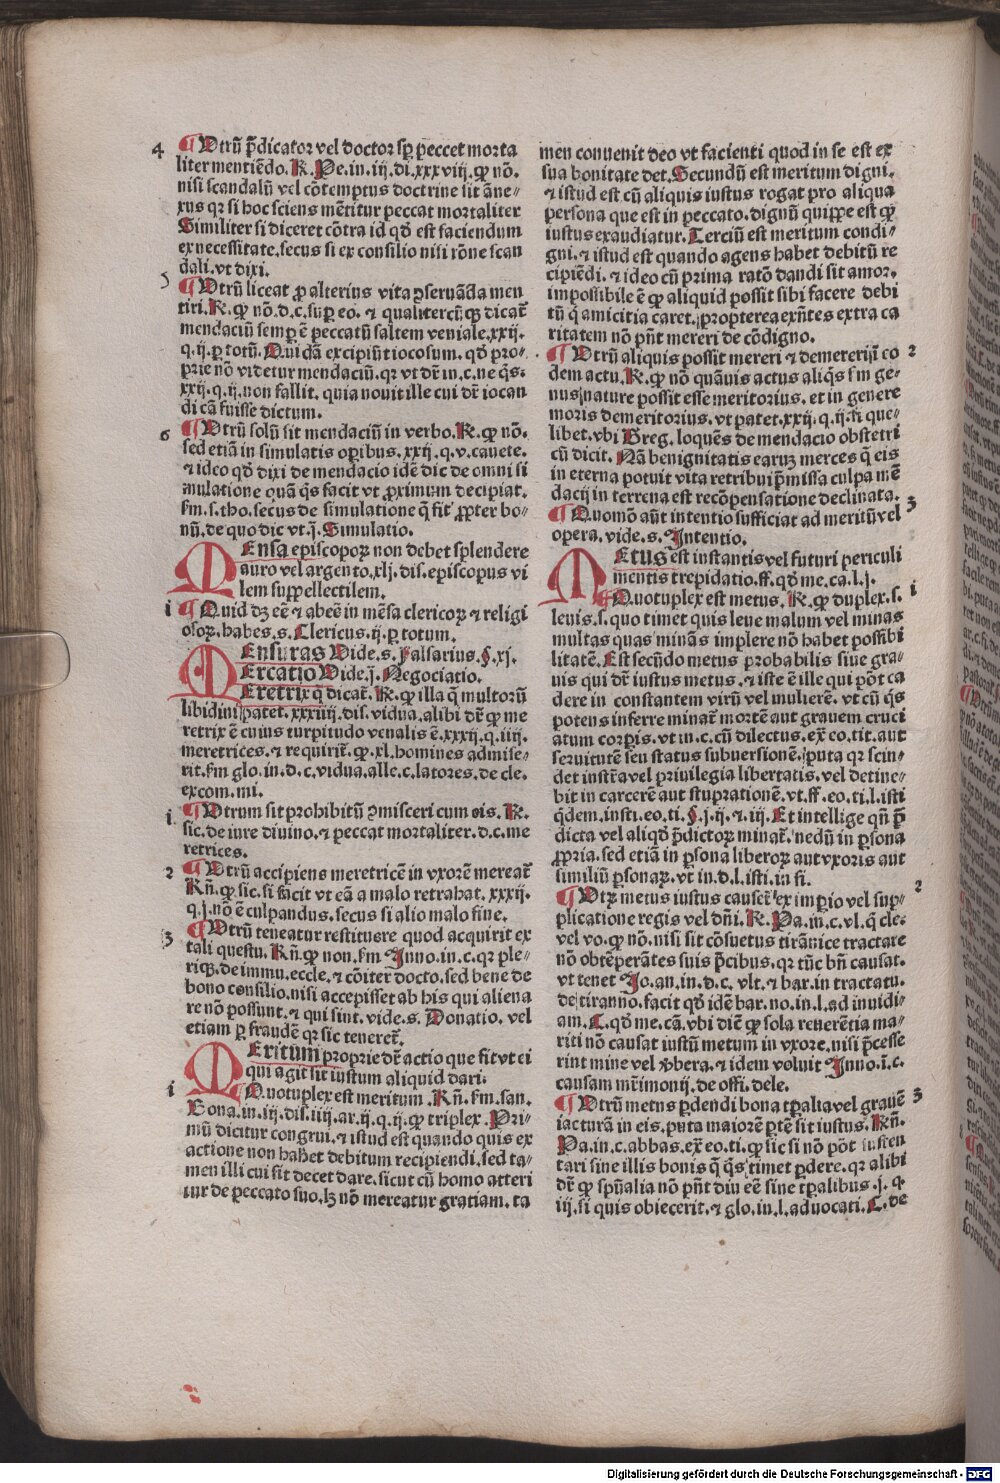 4
¶ Utrũ p̃dicator vel doctor sp̱ peccet morta
liter mentiẽdo. R. Pe. in. iij. di. xxxviij. qꝛ nõ.
nisi scandalũ vel cõtemptus doctrine sit ãne⸗
xus qꝛ si hoc sciens mẽtitur peccat mortaliter
Similiter si diceret cõtra id qð est faciendum
ex necessitate. secus si ex consilio nisi rõne scan
dali. vt dixi.
5
¶ Utrũ liceat ꝓ alterius vita ꝯseruãda men
tiri. R. ꝙ nõ. d. c. suꝑ eo. ⁊ qualitercũqꝫ dicat̃
mendaciũ semꝑ ẽ peccatũ saltem veniale. xxij.
q. ij. ꝑ totũ. Qui dã excipiũt iocosum. qð pro⸗
prie nõ videtur mendaciũ. qꝛ vt dr̃ in. c. ne q̃s.
xxij. q. ij. non fallit. quia nouit ille cui dr̃ iocan
di cã fuisse dictum.
6
¶ Utrũ solũ sit mendaciũ in verbo. R. ꝙ nõ.
sed etiã in simulatis oꝑibus. xxij. q. v. cauete.
⁊ ideo qð dixi de mendacio idẽ dic de omni si
mulatione quã q̃s facit vt ꝓximum decipiat.
fm. s. tho. secus de simulatione q̃ fit ꝓpter bo⸗
nũ. de quo dic vt. j̃. Simulatio.
MEnsa episcopoꝝ non debet splendere
auro vel argento. xlj. dis. episcopus vi
lem supꝑellectilem.
i
¶ Quid dꝫ eẽ ⁊ abeẽ in mẽsa clericoꝝ ⁊ religi
osoꝝ. habes. s. Clericus. ij. ꝑ totum.
MEnsuras Vide. s. Falsarius. §. xj.
Ercatio Vide. j̃. Negociatio.
Eretrix q̃ dicat̃. R. ꝙ illa q̃ multorũ
libidini patet. xxxiiij. dis. vidua. alibi dr̃ ꝙ me
retrix ẽ cuius turpitudo venalis ẽ. xxxij. q. iiij.
meretrices. ⁊ requirit̃. ꝙ. xl. homines admise⸗
rit. fm glo. in. d. c. vidua. alle. c. latores. de cle.
excom. mi.
i
¶ Utrum sit prohibitũ ꝯmisceri cum eis. R.
sic. de iure diuino. ⁊ peccat mortaliter. d. c. me
retrices.
2
¶ Utrũ accipiens meretricẽ in vxorẽ mereat̃
Rñ. ꝙ sic. si facit vt eã a malo retrahat. xxxij.
q. j. nõ ẽ culpandus. secus si alio malo fine.
3
¶ Utrũ teneatur restituere quod acquirit ex
tali questu. Rñ. ꝙ non. fm Inno. in. c. qꝛ ple⸗
riqꝫ. de immu. eccle. ⁊ cõiter docto. sed bene de
bono consilio. nisi accepisset ab his qui aliena
re nõ possunt. ⁊ qui sint. vide. s. Donatio. vel
etiam ꝑ fraudẽ qꝛ sic teneret̃.
MEritum proprie dr̃ actio que fit vt ei
qui agit sit iustum aliquid dari.
i
¶ Quotuplex est meritum. Rñ. fm. san.
Bona. in. iij. dis. iiij. ar. ij. q. ij. ꝙ triplex. Pri⸗
mũ dicitur congrui. ⁊ istud est quando quis ex
actione non habet debitum recipiendi. sed ta⸗
men illi cui sit decet dare. sicut cũ homo atteri
tur de peccato suo. lꝫ nõ mereatur gratiam. ta
men conuenit deo vt facienti quod in se est ex
sua bonitate det. Secundũ est meritum digni.
⁊ istud est cũ aliquis iustus rogat pro aliqua
persona que est in peccato. dignũ quippe est ꝙ
iustus exaudiatur. Terciũ est meritum condi⸗
gni. ⁊ istud est quando agens habet debitũ re
cipiẽdi. ⁊ ideo cũ prima ratõ dandi sit amor.
impossibile ẽ ꝙ aliquid possit sibi facere debi
tũ q̃ amicitia caret. propterea exñtes extra ca
ritatem nõ pñt mereri de cõdigno.
2
¶ Utrũ aliquis possit mereri ⁊ demereri ĩ eo
dem actu. R. ꝙ nõ quãuis actus aliq̃s fm ge⸗
nus nature possit esse meritorius. et in genere
moris demeritorius. vt patet. xxij. q. ij. si que⸗
libet. vbi Greg. loquẽs de mendacio obstetri
cũ dicit. Nã benignitatis earuꝫ merces q̃ eis
in eterna potuit vita retribui p̃missa culpa mẽ
dacij in terrena est recõpensatione declinata.
3
¶ Quomõ aũt intentio sufficiat ad meritũ vel
opera. vide. s. Intentio.
MEtus est instantis vel futuri periculi
mentis trepidatio. ff. qð me. ca. l. j.
i
¶ Quotuplex est metus. R. ꝙ duplex. s.
leuis. s. quo timet quis leue malum vel minas
multas quas minãs implere nõ habet possibi
litatẽ. Est secũdo metus probabilis siue gra⸗
uis qui dr̃ iustus metus. ⁊ iste ẽ ille qui põt ca
dere in constantem virũ vel mulierẽ. vt cũ q̃s
potens inferre minat̃ mortẽ aut grauem cruci
atum corꝑis. vt in. c. cũ dilectus. ex̃. eo. tit. aut
seruitutẽ seu status subuersionẽ. puta qꝛ scin⸗
det instr̃a vel priuilegia libertatis. vel detine⸗
bit in carcerẽ aut stuprationẽ. vt. ff. eo. ti. l. isti
q̃dem. insti. eo. ti. §. j. ij. ⁊. iij. Et intellige qñ p̃
dicta vel aliqð p̃dictoꝝ minat̃. nedũ in ꝑsona
ꝓpria. sed etiã in ꝑsona liberoꝝ aut vxoris aut
similiũ ꝑsonaꝝ. vt in. d. l. isti. in fi.
2
¶ Utrꝫ metus iustus causet̃ ex imꝑio vel sup⸗
plicatione regis vel dñi. R. Pa. in. c. vl. q̃ cle.
vel vo. ꝙ nõ. nisi sit cõsuetus tirãnice tractare
nõ obtẽperãtes suis p̃cibus. qꝛ tũc bñ causat.
vt tenet Jo. an. in. d. c. vlt. ⁊ bar. in tractatu.
de tiranno. facit qð idẽ bar. no. in. l. ad inuidi⸗
am. C. qð me. cã. vbi diẽ ꝙ sola reuerẽtia ma⸗
riti nõ causat iustũ metum in vxore. nisi p̃cesse
rint mine vel v̓bera. ⁊ idem voluit Inno. ĩ. c.
causam mr̃imonij. de offi. dele.
3
¶ Utrũ metus ꝑdendi bona tꝑalia vel grauẽ
iacturã in eis. puta maiorẽ ꝑtẽ sit iustus. Rñ.
Pa. in. c. abbas. ex̃. eo. ti. ꝙ sic si nõ põt susten
tari sine illis bonis q̃ q̃s timet ꝑdere. qꝛ alibi
dr̃ ꝙ spũalia nõ pñt diu eẽ sine tꝑalibus. j. q.
iij. si quis obiecerit. ⁊ glo. in. l. aduocati. C. de
Digitalisierung gefördert durch die Deutsche Forschungsgemeinschaft - DFG